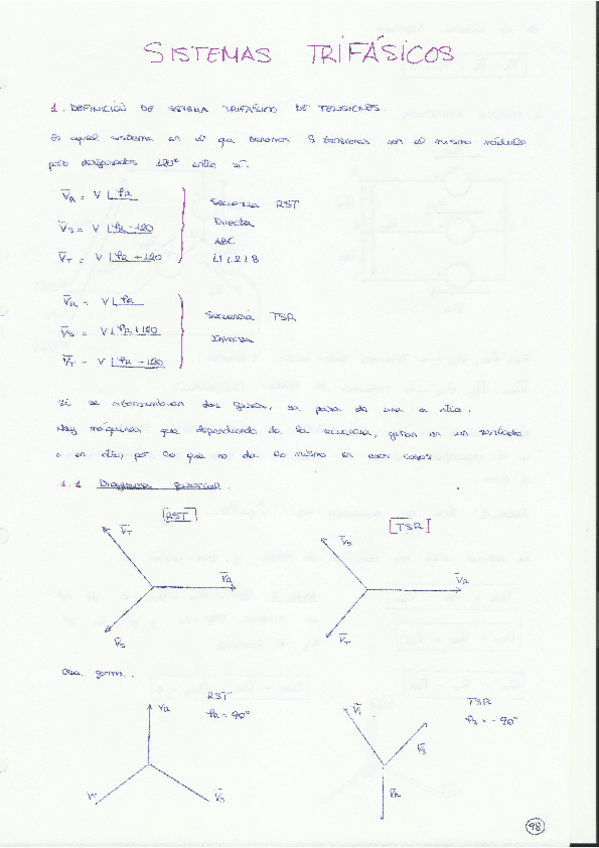 SISTEMAS TRIFÁSICOS
1. DEFINICIÓN DE SISTEMA TRIFÁSICO DE TENSIONES.
Es aquel sistema en el que tenemos 3 tensiones con el mismo módulo
pero desfasados 120° entre sí.
V̅R = V ∠φR
Secuencia RST
V̅S = V ∠φR-120
Directa
ABC
V̅T = V ∠φR+120
V̅R = V ∠φR
Secuencia TSR
V̅S = V ∠φR+120
Inversa
V̅T = V ∠φR-120
Si se intercambian dos fases, se pasa de una a otra.
Hay máquinas que dependiendo de la secuencia, giran en un sentido
o en otro, por lo que no da lo mismo en esos casos
1.1 Diagrama fasorial.
RST
TSR
V̅T
V̅S
V̅R
V̅R
V̅S
V̅T
Otra forma.
RST
φR = 90°
TSR
φR = -90°
VR
V̅T
V̅S
V̅S
V̅R
98